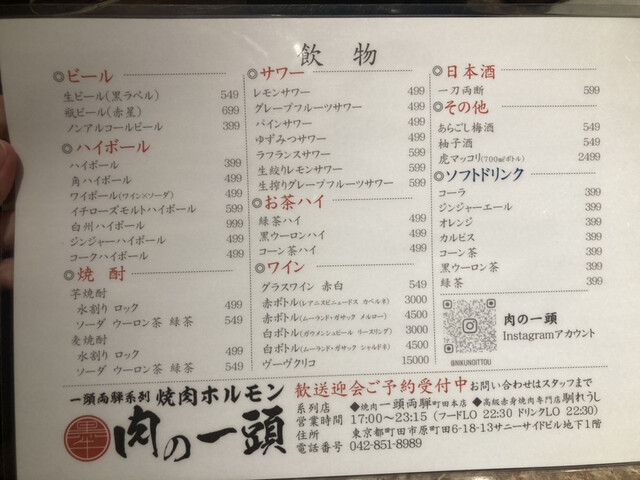 飲物
◎ビール
生ビール(黒ラベル) 549
瓶ビール(赤星) 699
ノンアルコールビール 399
◎ハイボール
ハイボール 399
角ハイボール 499
ワイボール(ワイン×ソーダ) 499
イチローズモルトハイボール 599
白州ハイボール 999
ジンジャーハイボール 499
コークハイボール 499
◎焼酎
芋焼酎
水割り ロック 499
ソーダ ウーロン茶 緑茶 549
麦焼酎
水割り ロック 499
ソーダ ウーロン茶 緑茶 549
◎サワー
レモンサワー 499
グレープフルーツサワー 499
パインサワー 499
ゆずみつサワー 499
ラフランスサワー 599
生絞りレモンサワー 599
生搾りグレープフルーツサワー 599
◎お茶ハイ
緑茶ハイ 499
黒ウーロンハイ 499
コーン茶ハイ 499
◎ワイン
グラスワイン 赤白 549
赤ボトル 3000
赤ボトル(ムーランド・ガサック メルロー) 4500
白ボトル 3000
白ボトル(ムーランド・ガサック シャルドネ) 4500
ヴーヴクリコ 15000
◎日本酒
一刀両断 599
◎その他
あらごし梅酒 549
柚子酒 549
虎マッコリ(700mlボトル) 2499
◎ソフトドリンク
コーラ 399
ジンジャーエール 399
オレンジ 399
カルピス 399
コーン茶 399
黒ウーロン茶 399
緑茶 399
肉の一頭
Instagramアカウント
@NIKUNOITTOU
一頭両騨系列 焼肉ホルモン
肉の一頭
歓送迎会ご予約受付中 お問い合わせはスタッフまで
系列店 ◆焼肉一頭両騨町田本店 ◆高級赤身焼肉専門店 馴れうし
営業時間 17:00〜23:15 (フードLO 22:30 ドリンクLO 22:30)
住所 東京都町田市原町田6-18-13サニーサイドビル地下1階
電話番号 042-851-8989